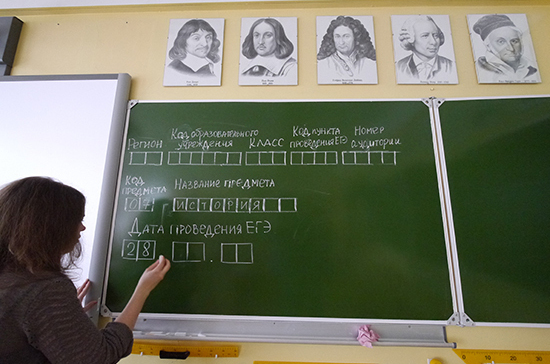 Регион Код образовательного учреждения Класс Код пункта проведения ЕГЭ Номер аудитории
Код предмета Название предмета
07 ИСТОРИЯ
Дата проведения ЕГЭ
28 .